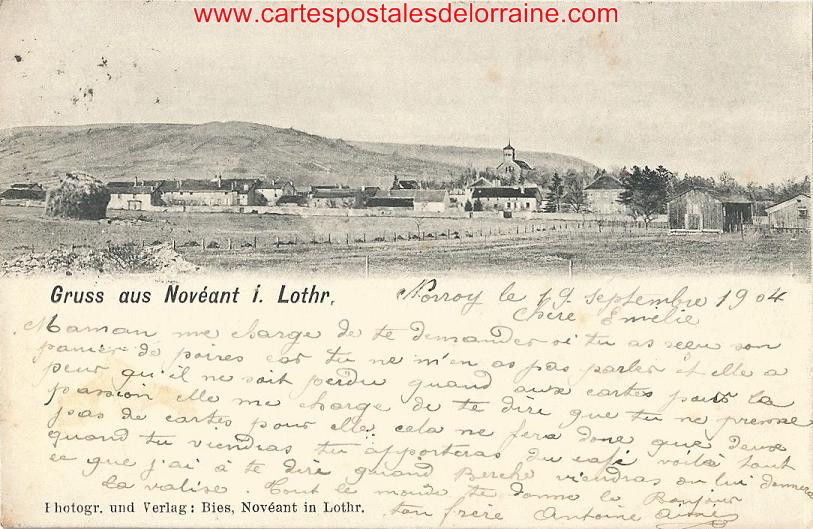 www.cartespostalesdelorraine.com
Gruss aus Novéant i. Lothr.
Norroy le 19 septembre 1904
Chère Emelie
Maman me charge de te demander si tu as reçu son
panier de poires car tu ne m'en as pas parler et elle a
peur qu'il ne soit perdu quand aux cartes pour la
passion elle me charge de te dire que tu ne prenne
pas de cartes pour elle, cela ne fera donc que deux
quand tu viendras tu apporteras du café voilà tout
ce que j'ai à te dire quand viendras on lui donnera
la valise. Tout le monde te donne le Bonjour
ton frère Antoine
Photogr. und Verlag: Bies, Novéant in Lothr.